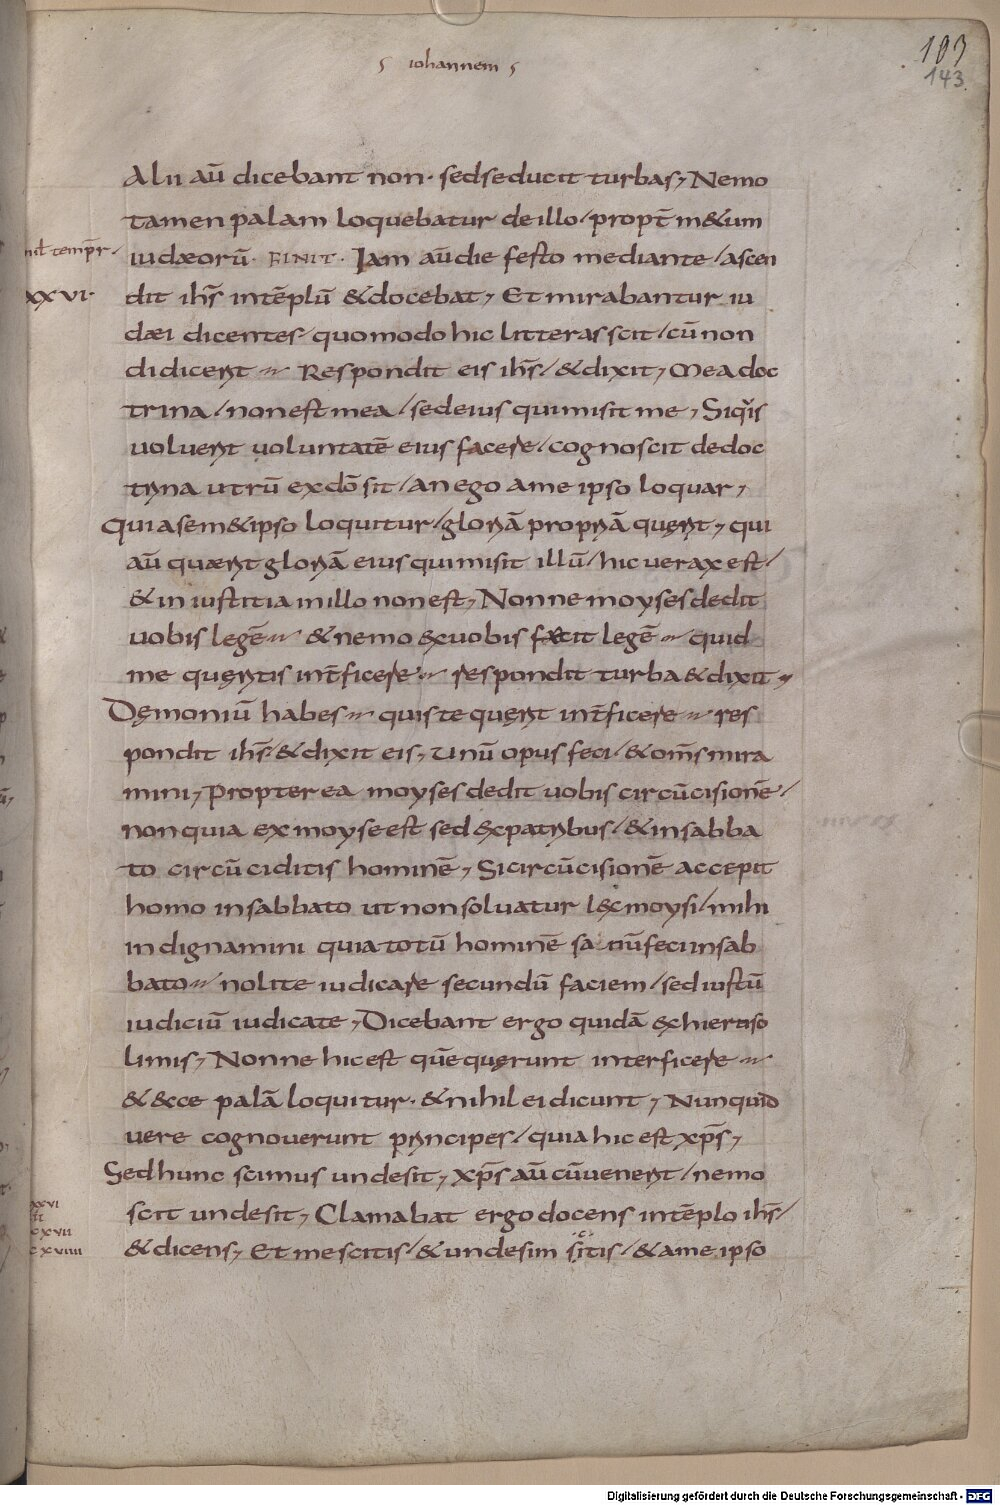 iohannem
103
143
Alii aū dicebant non· sed seducit turbas, Nemo
tamen palam loquebatur de illo / propt̄ m&um
iudæorū· FINIT· Iam aū die festo mediante / ascen
dit ihs̄ in tēplū & docebat, Et mirabantur iu
dæi dicentes / quomodo hic litteras scit / cū non
didicerit Respondit eis ihs̄ / & dixit, Mea doc
trina / non est mea / sed eius qui misit me, Siquis
uoluerit uoluntatē eius facere / cognoscit de doc
trina utrū ex dō sit / an ego a me ipso loquar,
Qui a sem&ipso loquitur / gloriā propriā quęrit, qui
aū quærit gloriā eius qui misit illū / hic uerax est /
& iniustitia in illo non est, Nonne moyses dedit
uobis legē & nemo ex uobis facit legē quid
me quęritis int̄ficere respondit turba & dixit
Dęmoniū habes quis te quęrit int̄ficere res
pondit ihs̄ / & dixit eis, Unū opus feci / & om̄s mira
mini, Propterea moyses dedit uobis circūcisionē /
non quia ex moyse est sed ex patribus / & in sabba
to circūciditis hominē, Si circūcisionē accepit
homo in sabbato ut non soluatur lex moysi / mihi
indignamini quia totū hominē sanū feci in sab
bato nolite iudicare secundū faciem / sed iustū
iudiciū iudicate, Dicebant ergo quidā ex hieroso
limis, Nonne hic est quē quęrunt interficere
& ecce palā loquitur· & nihil ei dicunt, Nunquid
uere cognouerunt principes / quia hic est xp̄s,
Sed hunc scimus unde sit, xp̄s aū cū uenerit / nemo
scit unde sit, Clamabat ergo docens in tēplo ihs̄ /
& dicens, Et me scitis / & unde sim scitis / & a me ipso
Digitalisierung gefördert durch die Deutsche Forschungsgemeinschaft - DFG